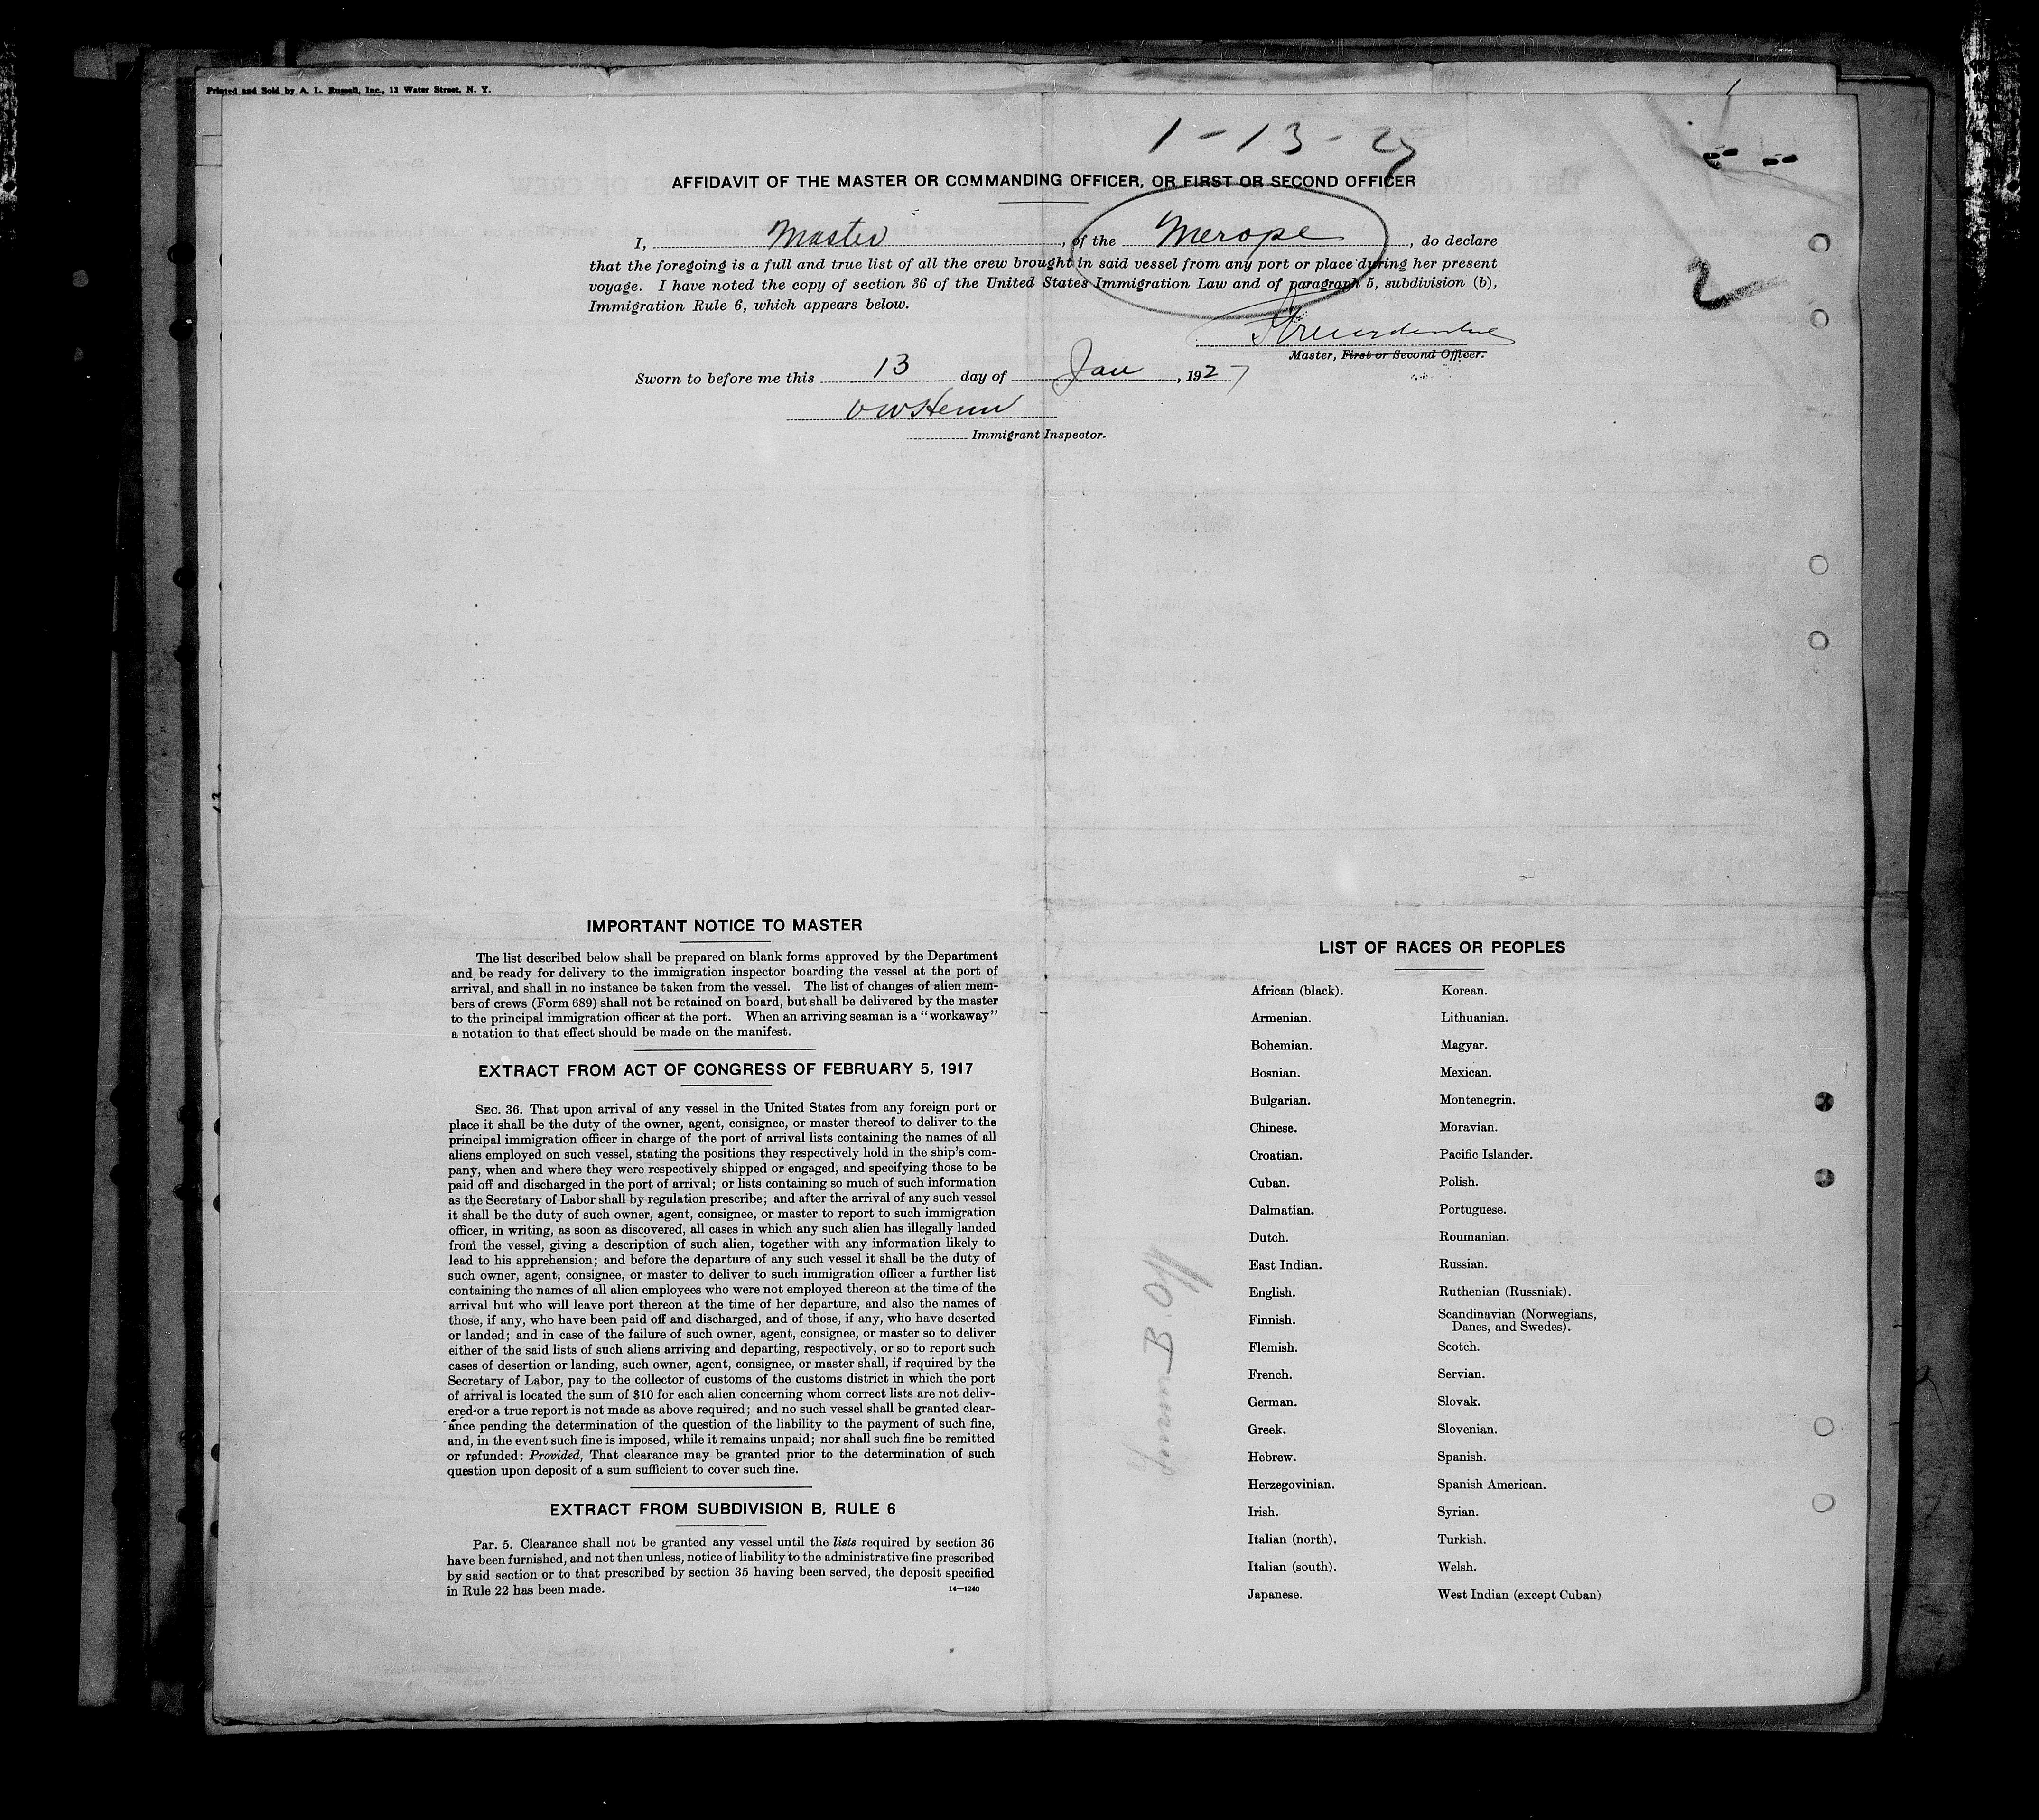 Printed and Sold by A. L. Russell, Inc., 13 Water Street, N. Y.
1-13-27
AFFIDAVIT OF THE MASTER OR COMMANDING OFFICER, OR FIRST OR SECOND OFFICER
I, Master, of the Merope, do declare
that the foregoing is a full and true list of all the crew brought in said vessel from any port or place during her present
voyage. I have noted the copy of section 36 of the United States Immigration Law and of paragraph 5, subdivision (b),
Immigration Rule 6, which appears below.
2
Master, First or Second Officer.
Sworn to before me this 13 day of Jan, 1927
Immigrant Inspector.
IMPORTANT NOTICE TO MASTER
The list described below shall be prepared on blank forms approved by the Department
and be ready for delivery to the immigration inspector boarding the vessel at the port of
arrival, and shall in no instance be taken from the vessel. The list of changes of alien mem-
bers of crews (Form 689) shall not be retained on board, but shall be delivered by the master
to the principal immigration officer at the port. When an arriving seaman is a "workaway"
a notation to that effect should be made on the manifest.
EXTRACT FROM ACT OF CONGRESS OF FEBRUARY 5, 1917
SEC. 36. That upon arrival of any vessel in the United States from any foreign port or
place it shall be the duty of the owner, agent, consignee, or master thereof to deliver to the
principal immigration officer in charge of the port of arrival lists containing the names of all
aliens employed on such vessel, stating the positions they respectively hold in the ship's com-
pany, when and where they were respectively shipped or engaged, and specifying those to be
paid off and discharged in the port of arrival; or lists containing so much of such information
as the Secretary of Labor shall by regulation prescribe; and after the arrival of any such vessel
it shall be the duty of such owner, agent, consignee, or master to report to such immigration
officer, in writing, as soon as discovered, all cases in which any such alien has illegally landed
from the vessel, giving a description of such alien, together with any information likely to
lead to his apprehension; and before the departure of any such vessel it shall be the duty of
such owner, agent, consignee, or master to deliver to such immigration officer a further list
containing the names of all alien employees who were not employed thereon at the time of the
arrival but who will leave port thereon at the time of her departure, and also the names of
those, if any, who have been paid off and discharged, and of those, if any, who have deserted
or landed; and in case of the failure of such owner, agent, consignee, or master so to deliver
either of the said lists of such aliens arriving and departing, respectively, or so to report such
cases of desertion or landing, such owner, agent, consignee, or master shall, if required by the
Secretary of Labor, pay to the collector of customs of the customs district in which the port
of arrival is located the sum of $10 for each alien concerning whom correct lists are not deliv-
ered or a true report is not made as above required; and no such vessel shall be granted clear-
ance pending the determination of the question of the liability to the payment of such fine,
and, in the event such fine is imposed, while it remains unpaid; nor shall such fine be remitted
or refunded: Provided, That clearance may be granted prior to the determination of such
question upon deposit of a sum sufficient to cover such fine.
EXTRACT FROM SUBDIVISION B, RULE 6
Par. 5. Clearance shall not be granted any vessel until the lists required by section 36
have been furnished, and not then unless, notice of liability to the administrative fine prescribed
by said section or to that prescribed by section 35 having been served, the deposit specified
in Rule 22 has been made.
14—1240
LIST OF RACES OR PEOPLES
African (black).
Armenian.
Bohemian.
Bosnian.
Bulgarian.
Chinese.
Croatian.
Cuban.
Dalmatian.
Dutch.
East Indian.
English.
Finnish.
Flemish.
French.
German.
Greek.
Hebrew.
Herzegovinian.
Irish.
Italian (north).
Italian (south).
Japanese.
Korean.
Lithuanian.
Magyar.
Mexican.
Montenegrin.
Moravian.
Pacific Islander.
Polish.
Portuguese.
Roumanian.
Russian.
Ruthenian (Russniak).
Scandinavian (Norwegians,
Danes, and Swedes).
Scotch.
Servian.
Slovak.
Slovenian.
Spanish.
Spanish American.
Syrian.
Turkish.
Welsh.
West Indian (except Cuban)